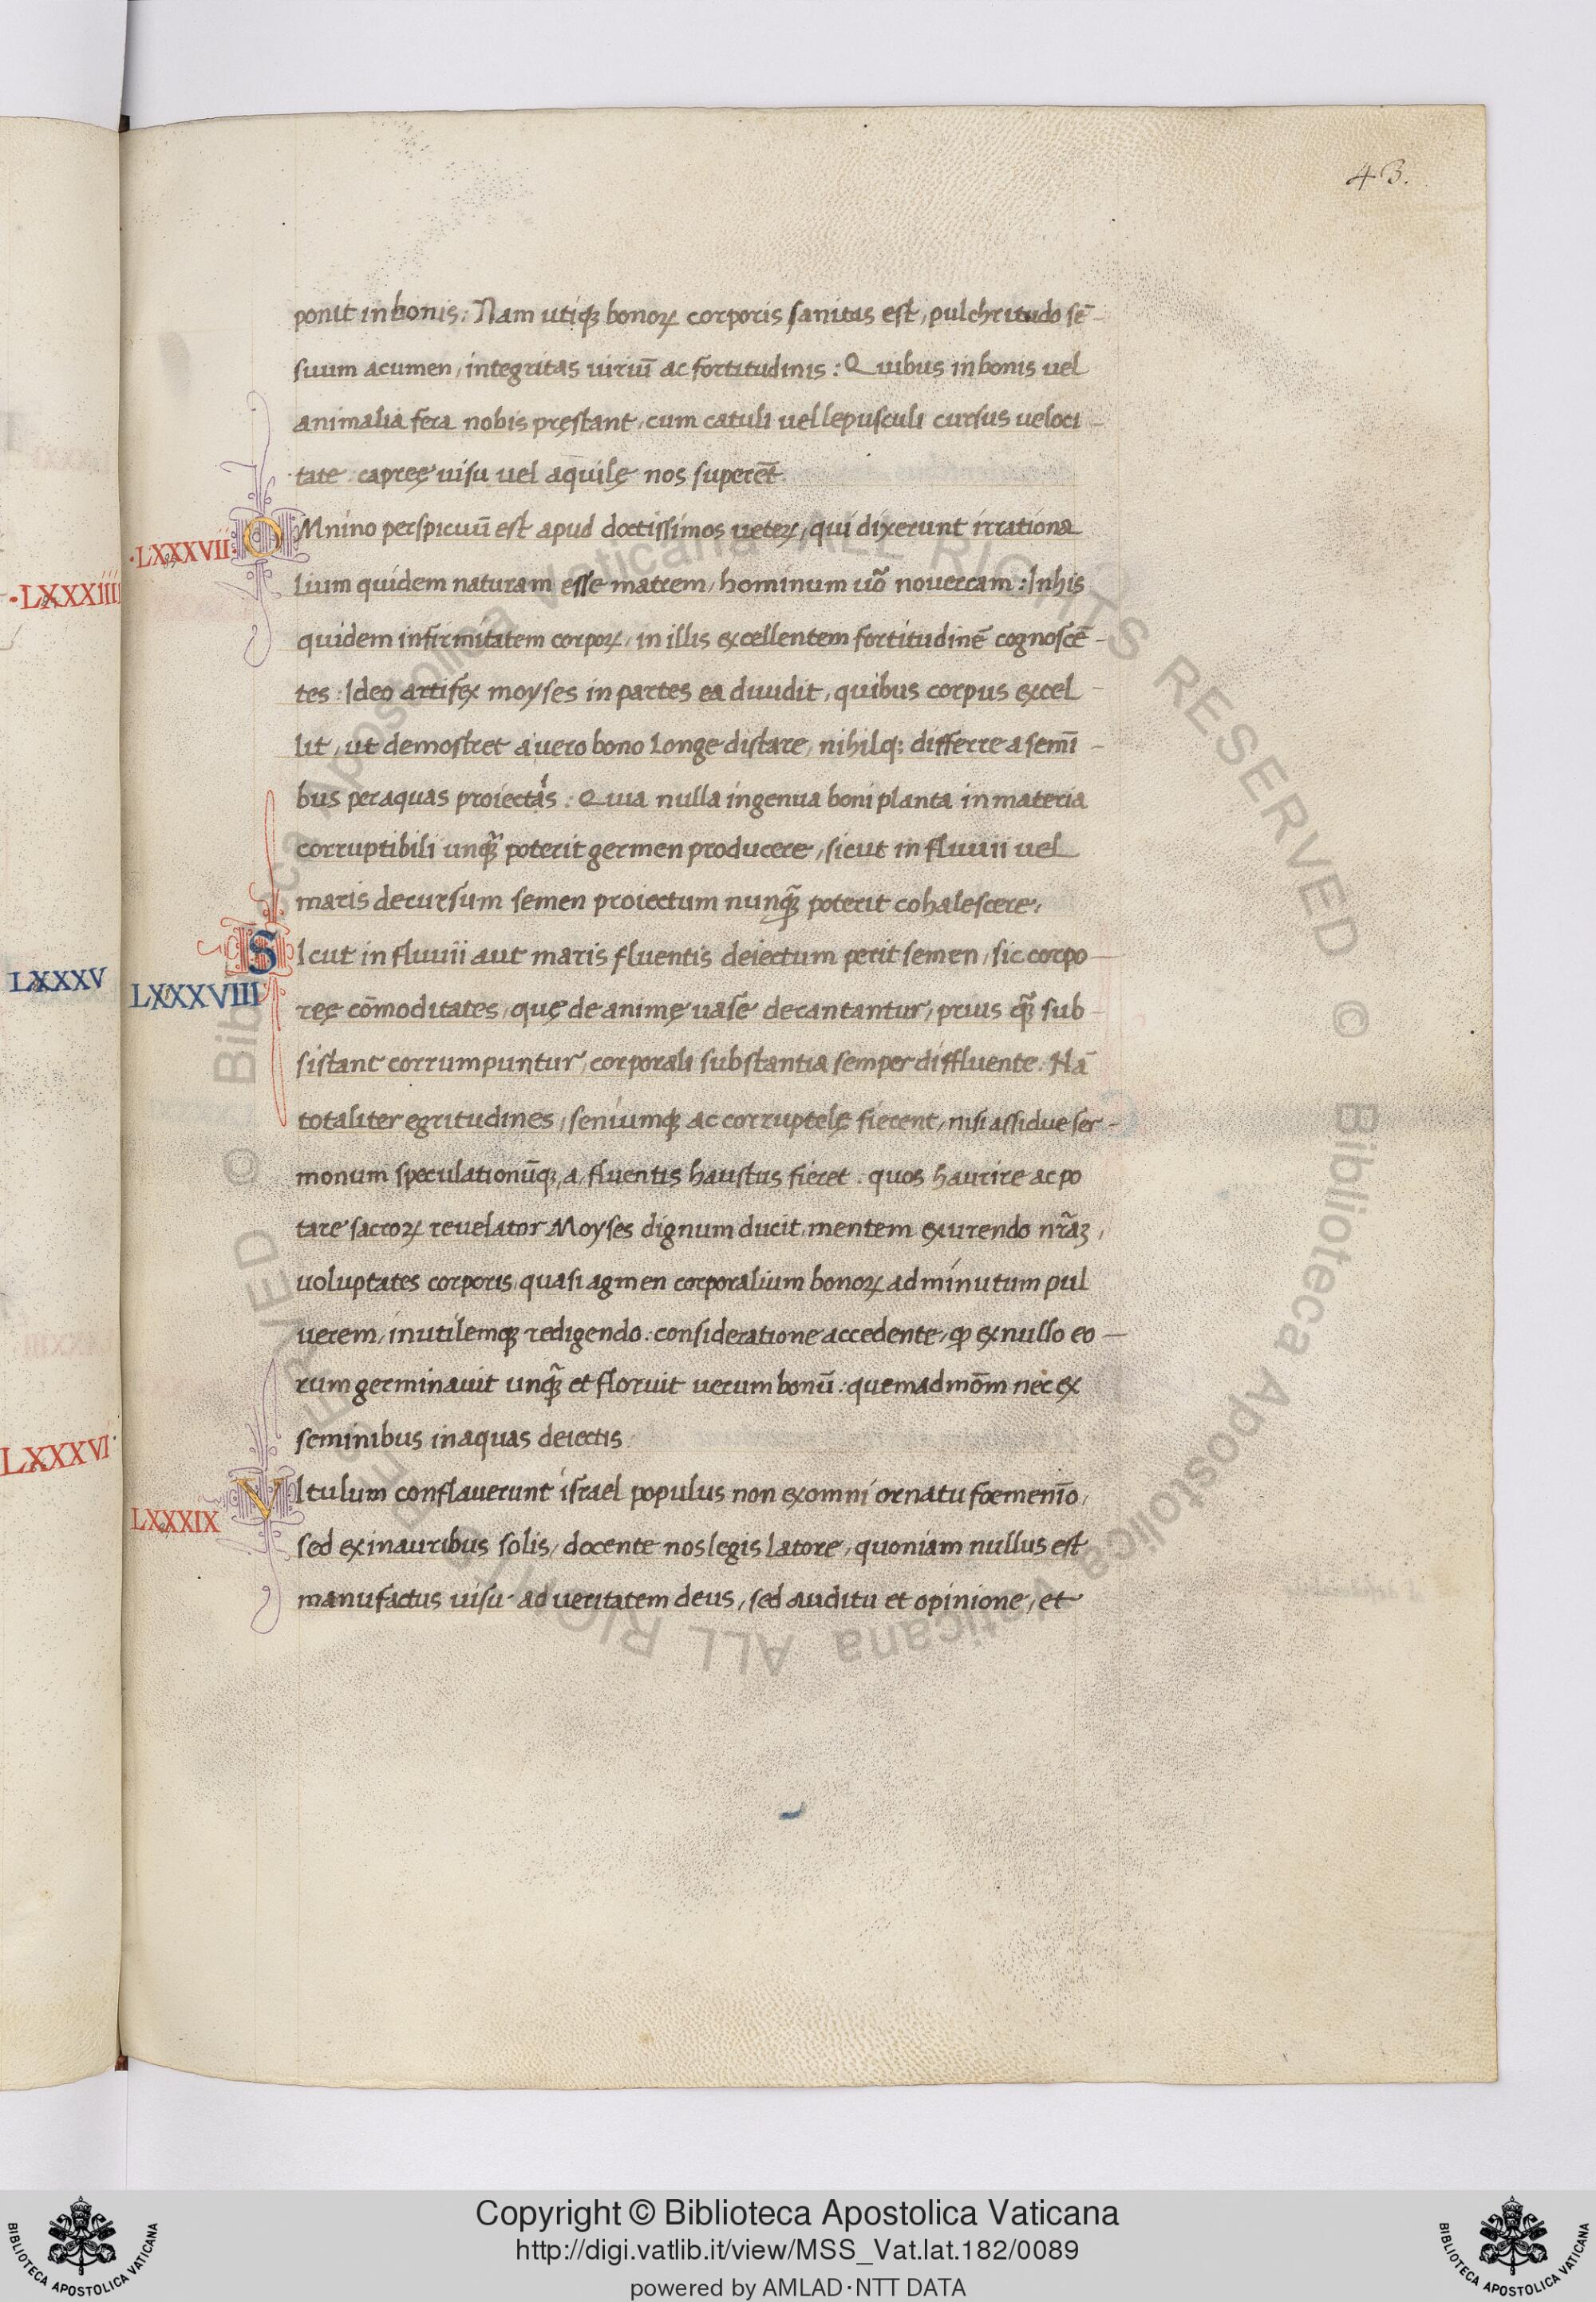 43.
ponit in bonis: Nam utiqꝫ bonoꝝ corporis sanitas est, pulchritudo sē-
suum acumen, integritas uiriū ac fortitudinis: Quibus in bonis uel
animalia fera nobis pręstant, cum catuli uel lepusculi cursus ueloci-
tate: capreę uisu uel aquilę nos superēt.
·LXXXVII· OMnino perspicuū est apud doctissimos ueteꝝ, qui dixerunt irrationa
·LXXXIIII
lium quidem naturam esse matrem, hominum uõ nouercam: In his
quidem infirmitatem corpoꝝ, in illis excellentem fortitudinē cognoscē-
tes: Ideo artifex moyses in partes ea diuidit, quibus corpus excel-
lit, ut demostret a uero bono longe distare, nihilqꝫ differre a semī-
bus per aquas proiectis: Quia nulla ingenua boni planta in materia
corruptibili unqꝫ̃ poterit germen producere, sicut in fluuii uel
maris decursum semen proiectum nunqꝫ̃ poterit cohalescere,
LXXXV
LXXXVIII SIcut in fluuii aut maris fluentis deiectum perit semen, sic corpo-
reę cōmoditates, quę de animę uase decantantur, prius qꝫ̃ sub-
sistant corrumpuntur, corporali substantia semper diffluente. Nā
totaliter egritudines, seniumqꝫ ac corruptelę fierent, nisi assidue ser-
monum speculationūqꝫ, a fluentis haustus fieret: quos haurire ac po
tare sacroꝝ reuelator Moyses dignum ducit, mentem exurendo nr̃aꝫ,
uoluptates corporis, quasi agmen corporalium bonoꝝ ad minutum pul
uerem, inutilemqꝫ redigendo: consideratione accedente, ꝙ ex nullo eo-
rum germinauit unqꝫ̃ et floruit uerum bonū: quemadmōm nec ex
seminibus in aquas deiectis
LXXXVI
LXXXIX VItulum conflauerunt israel populus non ex omni ornatu foemenīo,
sed ex inauribus solis, docente nos legis latore, quoniam nullus est
manufactus uisu ad ueritatem deus, sed auditu et opinione, et
© Biblioteca Apostolica Vaticana ALL RIGHTS RESERVED © Biblioteca Apostolica Vaticana ALL RIGHTS RESERVED
Copyright © Biblioteca Apostolica Vaticana
http://digi.vatlib.it/view/MSS_Vat.lat.182/0089
powered by AMLAD·NTT DATA
BIBLIOTECA APOSTOLICA VATICANA
BIBLIOTECA APOSTOLICA VATICANA